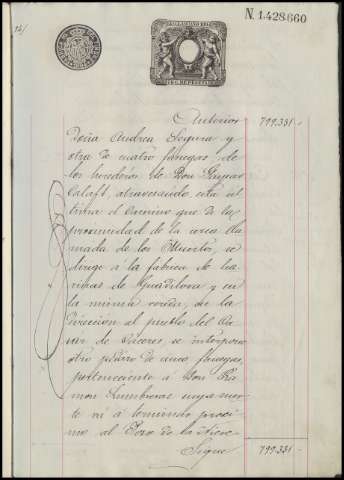 N. 1.428.660
Anterior 799.331
Doña Andrea Segura y
otra de cuatro fanegas, de
los herederos de Don Gaspar
Calaft, atravesando esta úl
tima el Camino que de la
proximidad de la cerca lla
mada de los Muertos, se
dirige á la fábrica de ha
rinas de Guadiloba y en
la misma vereda, en la
Dirección al pueblo del Ca
sar de Cáceres se
otro pedazo de cinco fanegas,
perteneciente á Don Ra
mon Lumbreras
vá á terminar proxi
mo al Pozo de la Nieve
Sigue 799.331